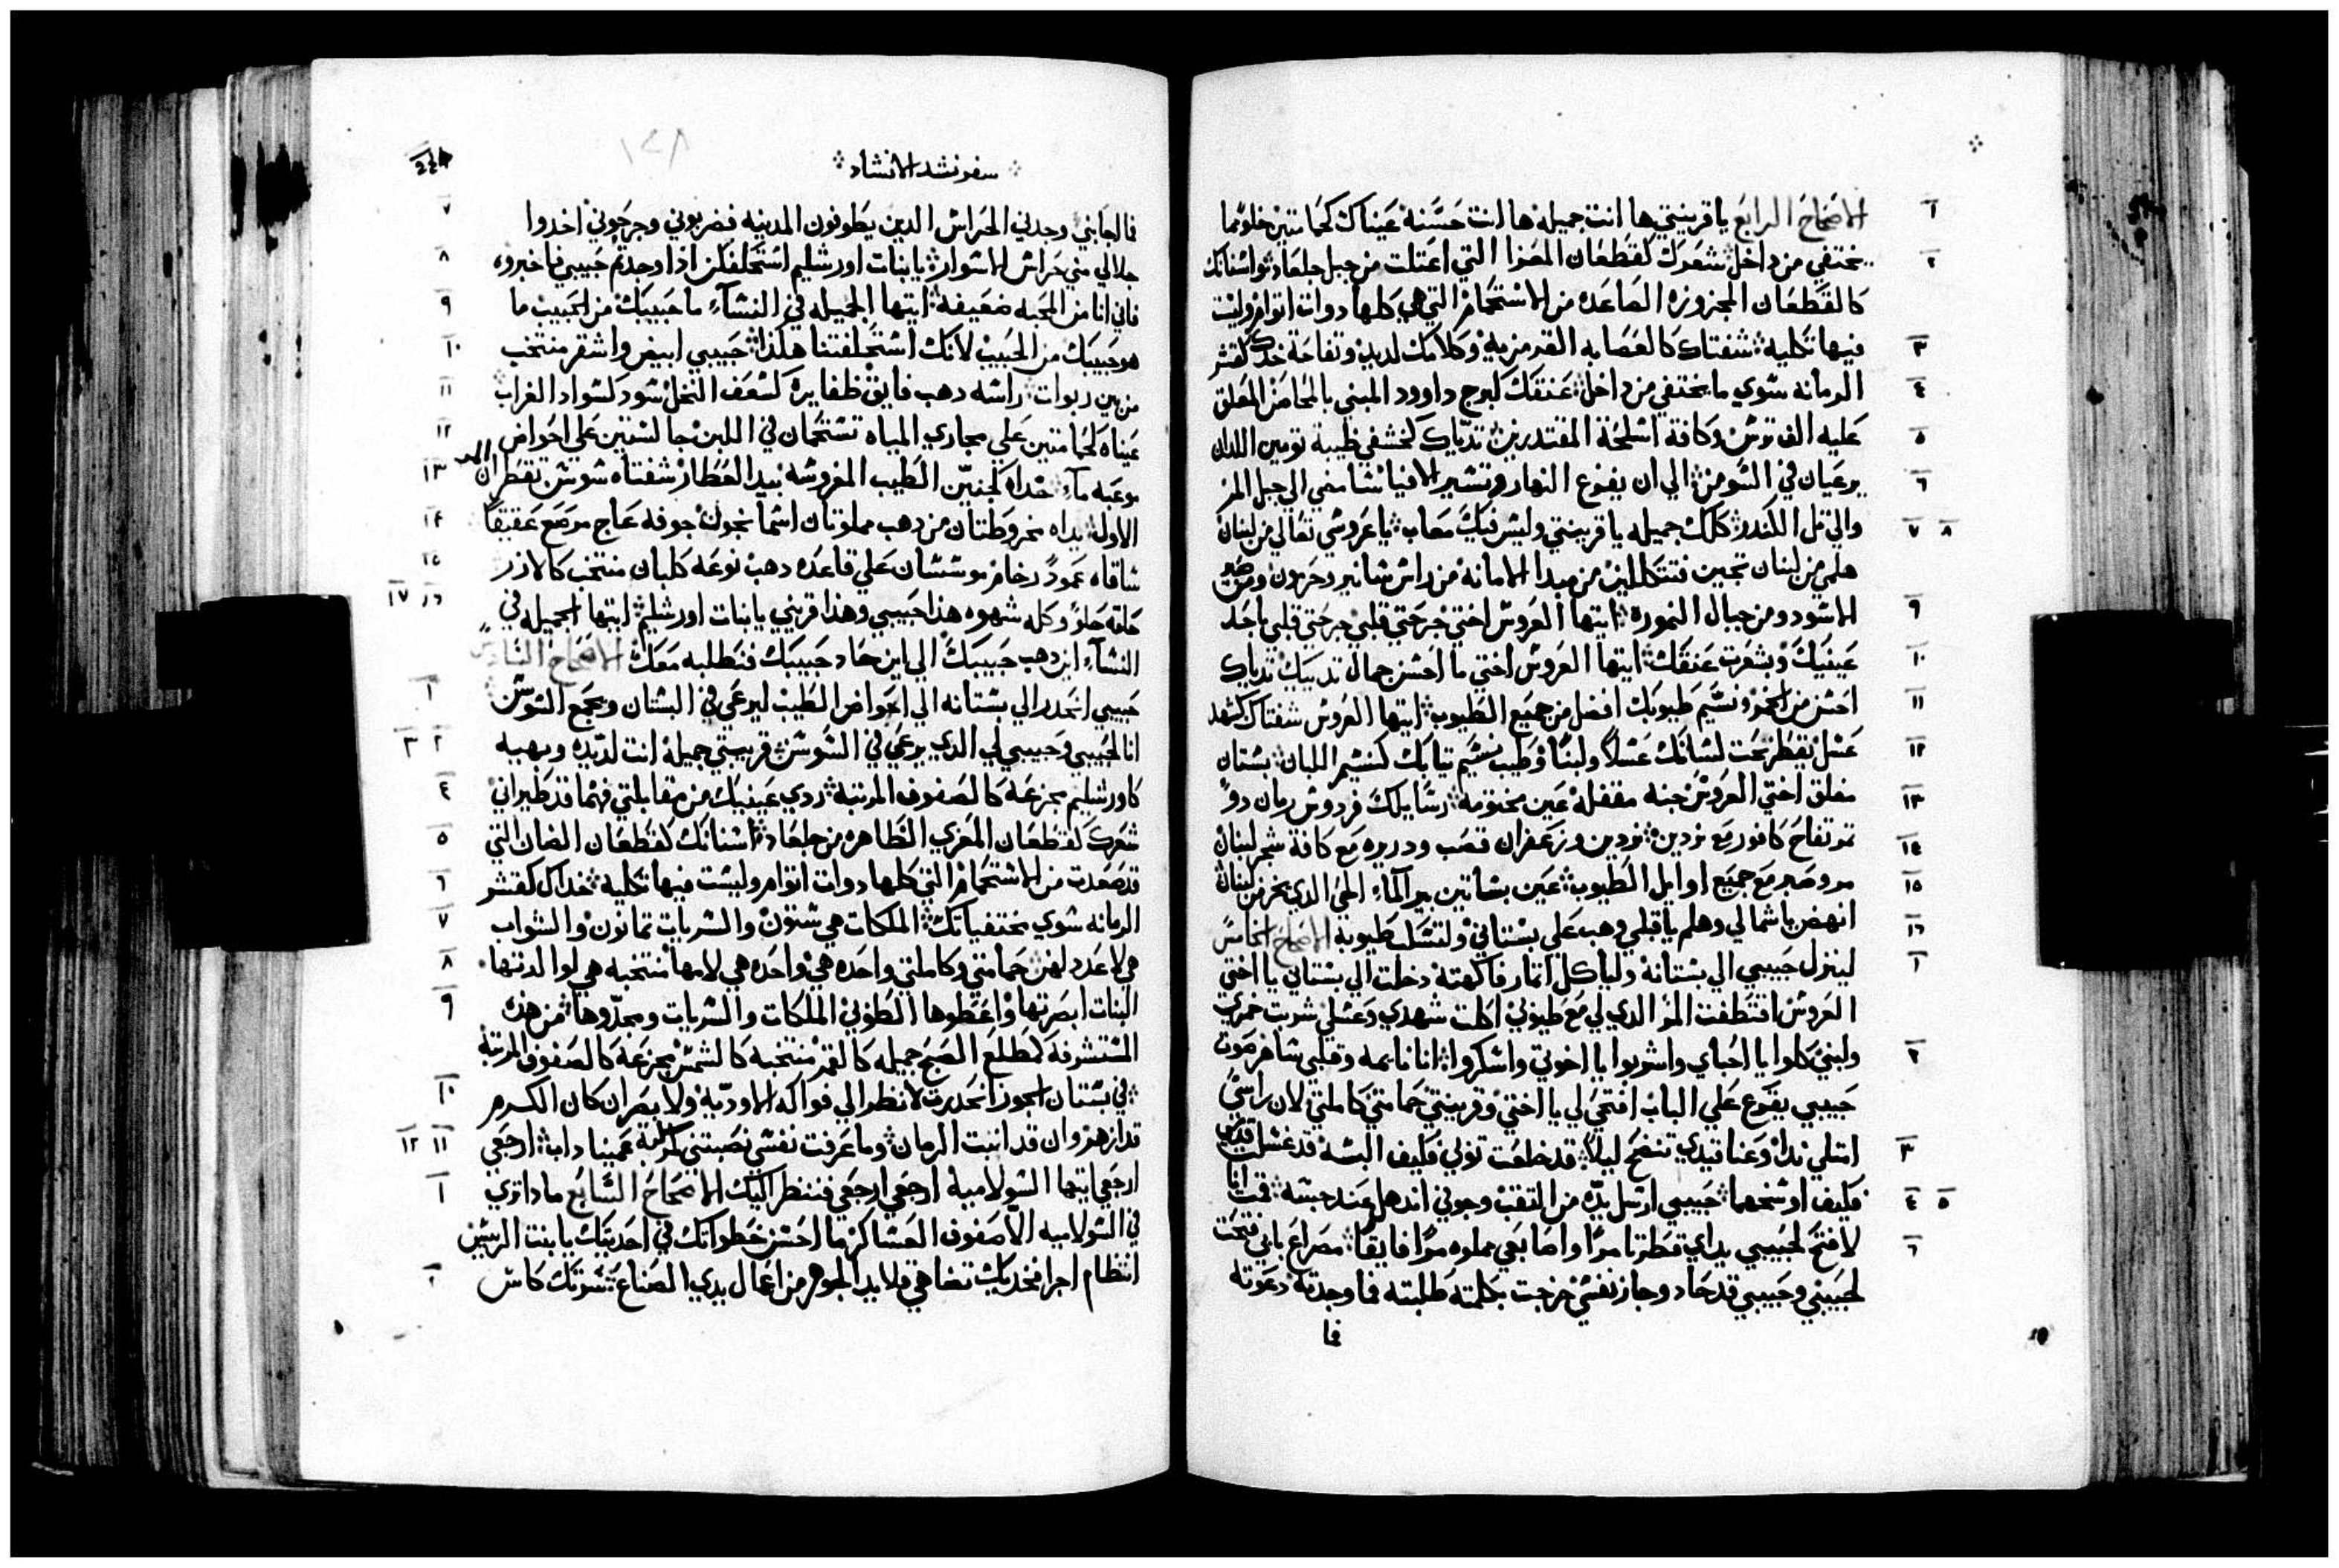 الاصحاح الرابع يا قرينتي ها انت جميله ها انت حسنة عيناك كحمامتين خلوًا مما ١
يختفي من داخل شعرك كقطعان المعزا التي اعتلت من جبل جلعاد اسنانك ٢
كالقطعان المجزوزه الصاعده من الاستحمام التي هي كلها دوات اتوام وليست
فيها ثكليه شفتاك كالعصابه القرمزيه وكلامك لديد وتفاحة خدك كقشر ٣
الرمانه سوي ما يختفي من داخل عنقك كبرج داوود المبني بالمحاصن المعلق ٤
عليه الف ترس وكافة اسلحة المقتدرين تدياك كخشفي ظبية تومين اللدان ٥
يرعيان في السوسن الي ان يفوع النهار وتسير الافيا سامضي الي جبل المر ٦
والي تل اللكندر كلك جميله يا قرينتي وليس فيك معاب يا عروسي تعالي من لبنان ٧ ٨
هلمي من لبنان تجين فتتكللين من مبدا الامانه من راس شانير وحرمون ومن صير
الاسود ومن جبال النموره ايتها العروس اختي جرحتي قلبي جرحتي قلبي باحد ٩
عينيك وبشعرت عنقك ايتها العروس اختي ما احسن جمال تدييك تدياك ١٠
احسن من الخمر ونسيم طيوبك افضل من جميع الطيوب ايتها العروس شفتاك كشهد ١١
عسل تقطر تحت لسانك عسلاً ولبنًا وطيب نسيم تيابك كنسيم اللبان بستان ١٢
مغلق اختي العروس جنه مقفلة عين مختومه رسايلك فردوس رمان دو ١٣
تمر تفاح كافور مع نردين نردين وزعفران قصب ودريره مع كافة شجر لبنان ١٤
مر وصبر مع جميع اوايل الطيوب عين بساتين بير الماء الحي الدي يخر من لبنان ١٥
انهض يا شمالي وهلم يا قبلي وهب علي بستاني ولتسل طيوبه الاصحاح الخامس ١٦
لينزل حبيبي الي بستانه ولياكل اتمار فاكهته دخلت الي بستاني يا اختي ١
العروس اقتطفت المر الدي لي مع طيوبي اكلت شهدي وعسلي شربت خمري
ولبني كلوا يا احباي واشربوا يا اخوتي واسكروا انا نايمه وقلبي ساهر صوت ٢
حبيبي يقرع علي الباب افتحي لي يا اختي وقرينتي حمامتي كاملتي لان راسي
امتلي ندا وعناقيدي تنضح ليلاً قد خلعت توبي فكيف البسه قد غسلت قدمي ٣
فكيف اوسخهما حبيبي ارسل يده من النقب وجوفي اندهل عند حبسه قمت انا ٤ ٥
لافتح لحبيبي يداي قطرتا مرًا واصابعي مملوه مرًا فايقًا مصراع بابي فتحت ٦
لحبيبي وحبيبي قد حاد وجاز نفسي خرجت بكلمته طلبته فما وجدته دعوته
فما
سفر نشيد الانشاد
١٤٨
فما اجابني وجدني الحراس الدين يطوفون المدينه فضربوني وجرحوني اخدوا ٧
جلالي مني حراس الاسوار يا بنات اورشليم استحلفكن اذا وجدتم حبيبي فاخبروه ٨
فاني انا من المحبه ضعيفه ايتها الجميله في النسآء ما حبيبك من الحبيب ما ٩
هو حبيبك من الحبيب لانك استحلفتنا هكذا حبيبي ابيض واشقر منتخب ١٠
من بين ربوات راسه دهب فايق ظفايره كسعف النخل سود كسواد الغراب ١١
عيناه كحمامتين علي مجاري المياه تستحمان في اللبن جالستين علي احواض ١٢
موعبه مآء خداه كجنتين الطيب المغروسه بيد العطار شفتاه سوسن تقطران المر ١٣
الاولة يداه مخروطتان من دهب مملوتان اسمانجون جوفه عاج مرصع عقيقًا ١٤
ساقاه عمودً رخام موسسان علي قاعده دهب نوعه كلبان منتخب كالارز ١٥
حلقه حلوًا وكله شهوه هدا حبيبي وهذا قريني يا بنات اورشليم ايتها الجميله في ١٦ ١٧
النسآء اين دهب حبيبك الي اين حاد حبيبك فنطلبه معك الاصحاح السادس
حبيبي انحدر الي بستانه الي احواض الطيب ليرعي في البستان ويجمع السوسن ١
انا لحبيبي وحبيبي لي الدي يرعي في السوسن قرينتي جميلة انت لديده وبهيه ٢ ٣
كاورشليم مجزعه كالصفوف المرتبه ردي عينيك من مقابلتي فهما قد طيراني ٤
شعرك كقطعان المعزي الظاهره من جلعاد اسنانك كقطعان الضان التي ٥
قد صعدت من الاستحمام التي كلها دوات اتوام وليست فيها ثكليه خداك كقشر ٦
الرمانه سوي مختفياتك الملكات هي ستون والسريات تمانون والشواب ٧
هي لا عدد لهن حمامتي وكاملتي واحده هي واحده هي لامها منتخبه هي لوالدتها ٨
البنات ابصرتها واعطوها الطوبي الملكات والسريات ومجدّوها من هذه ٩
المستشرفة كمطلع الصبح جميله كالقمر منتخبه كالشمس مجزعه كالصفوف المرتبه
في بستان الجوز انحدرت لانظر الي فواكه الاوديه ولابصر ان كان الكرم ١٠
قد ازهر وان قد انبت الرمان وما عرفت نفسي نصبتني كمركبة عميناداب ارجعي ١١ ١٢
ارجعي ايتها السولامية ارجعي ارجعي فننظر اليك الاصحاح السابع مادا تري ١
في السولاميه الا صفوف العساكر ما احسن خطواتك في احديتك يا بنت الريس
انتظام اجرا فخديك تضاهي قلايد الجوهر من اعمال يدي الصناع سرتك كاس ٢